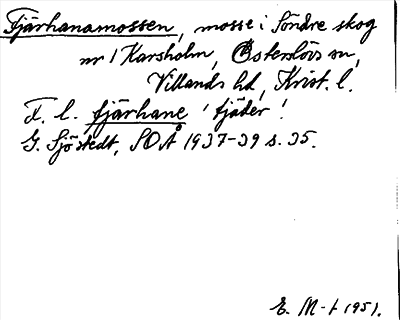 Fjärhanamossen, mosse i Söndre skog
nr 1 Karsholm, Österslövs sn,
Villands hd, Krist. l.
F. l. fjärhane 'fjäder'.
G. Sjöstedt, SOÅ 1937-39 s. 35.
E. M-t 1951.